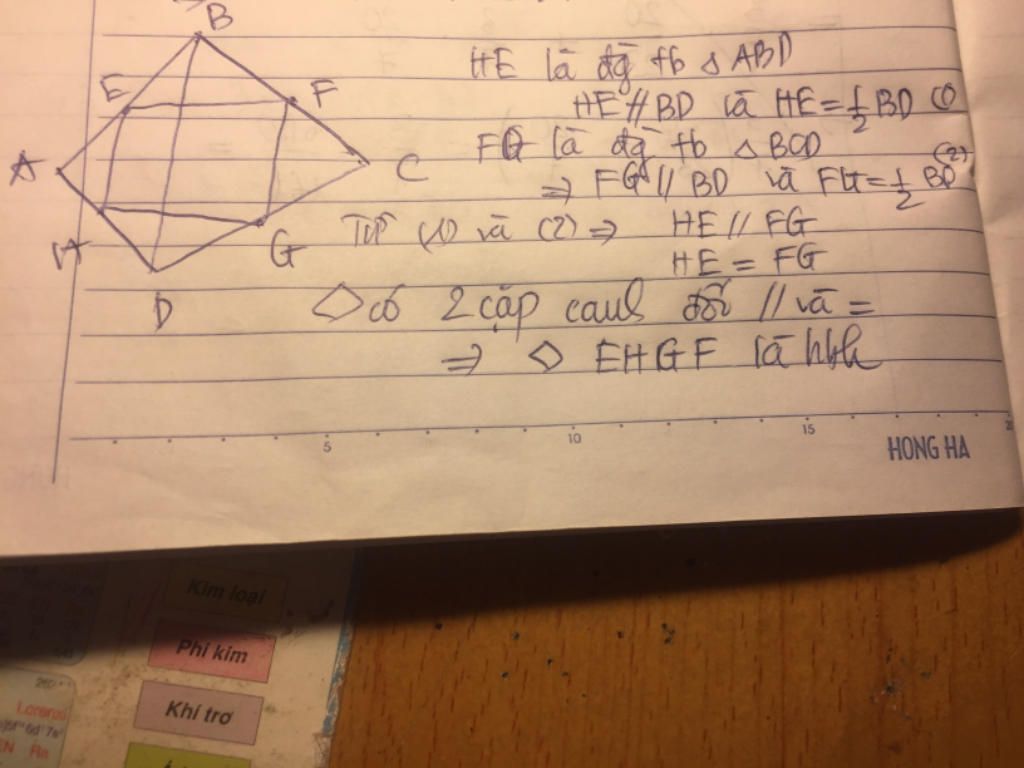 B
E
F
A
C
H
G
D
HE là đg tb △ ABD
HE // BD và HE = 1/2 BD (1)
FG là đg tb △ BCD
⇒ FG // BD và FG = 1/2 BD (2)
Từ (1) và (2) ⇒ HE // FG
HE = FG
◇ có 2 cặp cạnh đối // và =
⇒ ◇ EHGF là hbh
5 10 15
HONG HA
Kim loại
Phi kim
Khí trơ